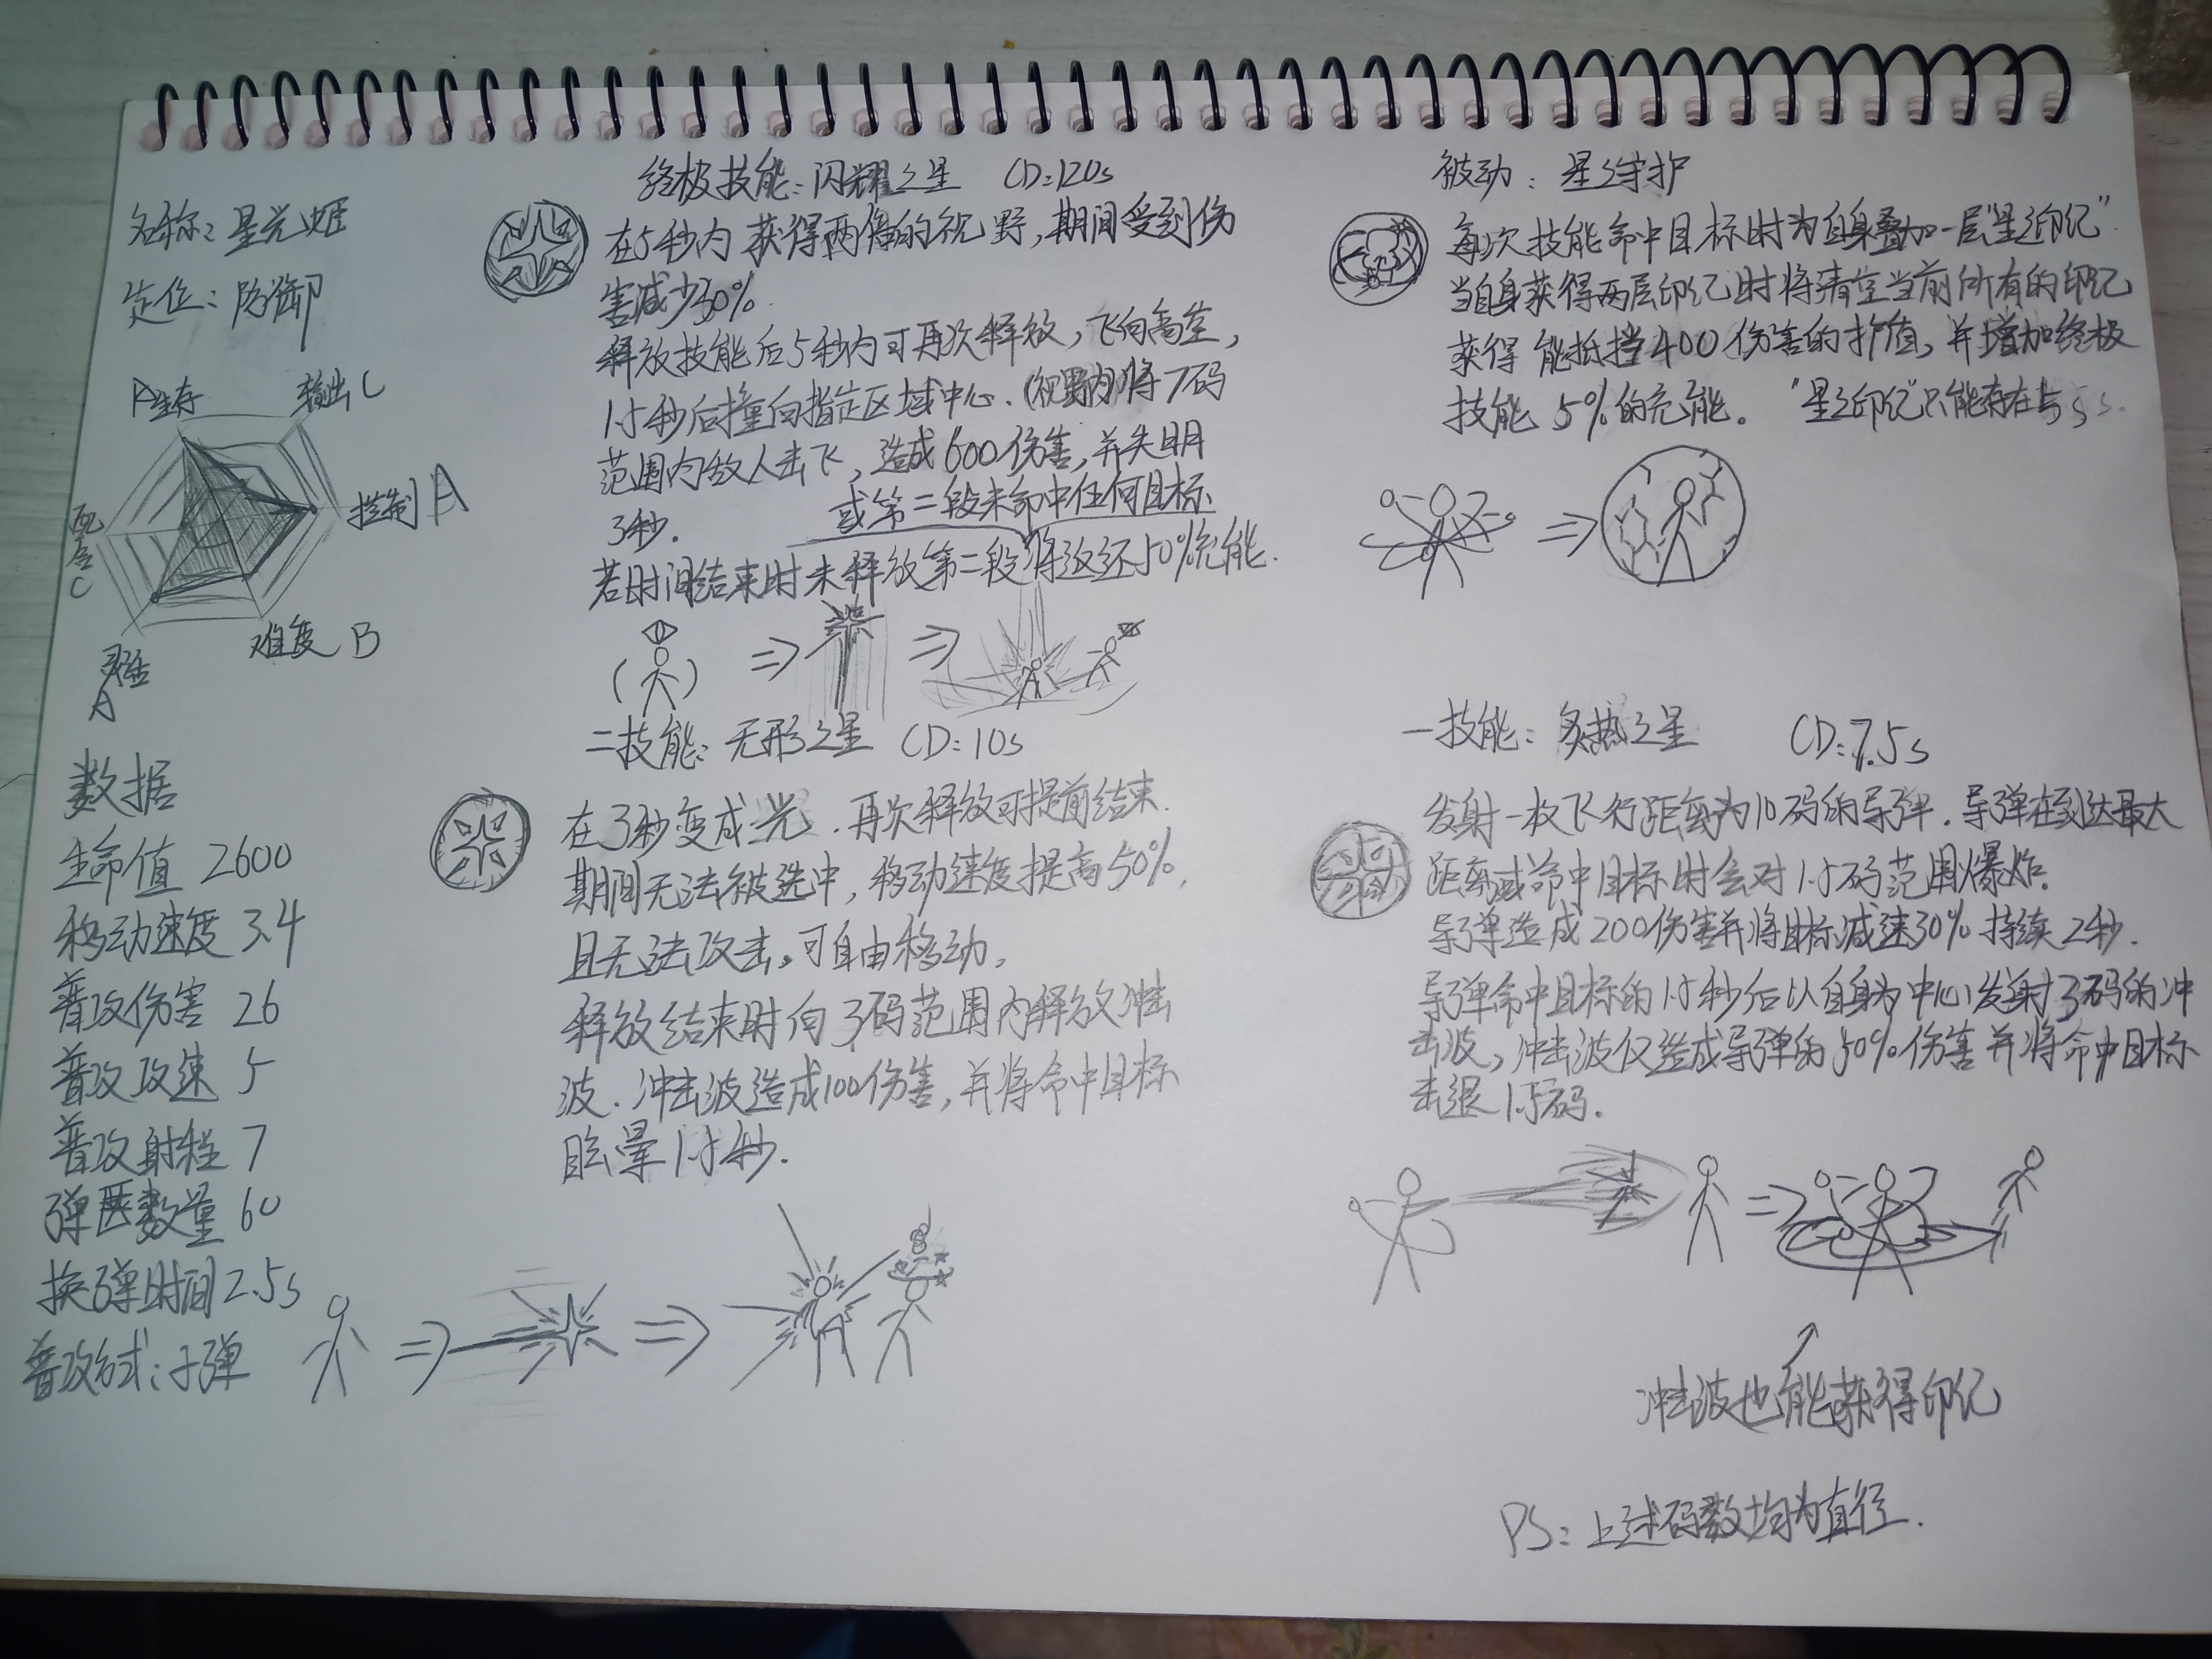 名称：星光姬
定位：防御
A生存
输出C
控制A
配合C
难度B
灵活
A
数据
生命值 2600
移动速度 3.4
普攻伤害 26
普攻攻速 5
普攻射程 7
弹匣数量 60
换弹时间 2.5s
普攻方式：子弹
终极技能：闪耀之星 CD：120s
在5秒内获得两倍的视野，期间受到伤
害减少30%.
释放技能后5秒内可再次释放，飞向高空，
1.5秒后撞向指定区域中心.(视野内)将7码
范围内敌人击飞，造成600伤害，并失明
3秒. 或第二段未命中任何目标
若时间结束时未释放第二段将返还50%充能.
二技能：无形之星 CD：10s
在3秒变成光.再次释放可提前结束.
期间无法被选中，移动速度提高50%,
且无法攻击。可自由移动。
释放结束时向3码范围内释放冲击
波.冲击波造成100伤害，并将命中目标
眩晕1.5秒.
被动：星之守护
每次技能命中目标时为自身叠加一层"星之印记"
当自身获得两层印记时将清空当前所有的印记
获得能抵挡400伤害的护值，并增加终极
技能5%的充能。"星之印记"只能存在5s
一技能：炙热之星 CD：7.5s
发射一枚飞行距离为10码的导弹.导弹在到达最大
距离或命中目标时会对1.5码范围爆炸.
导弹造成200伤害并将目标减速30%持续2秒.
导弹命中目标的1.5秒后以自身为中心发射3码的冲
击波，冲击波仅造成导弹的50%伤害并将命中目标
击退1.5码.
冲击波也能获得印记
PS：上述码数均为直径.